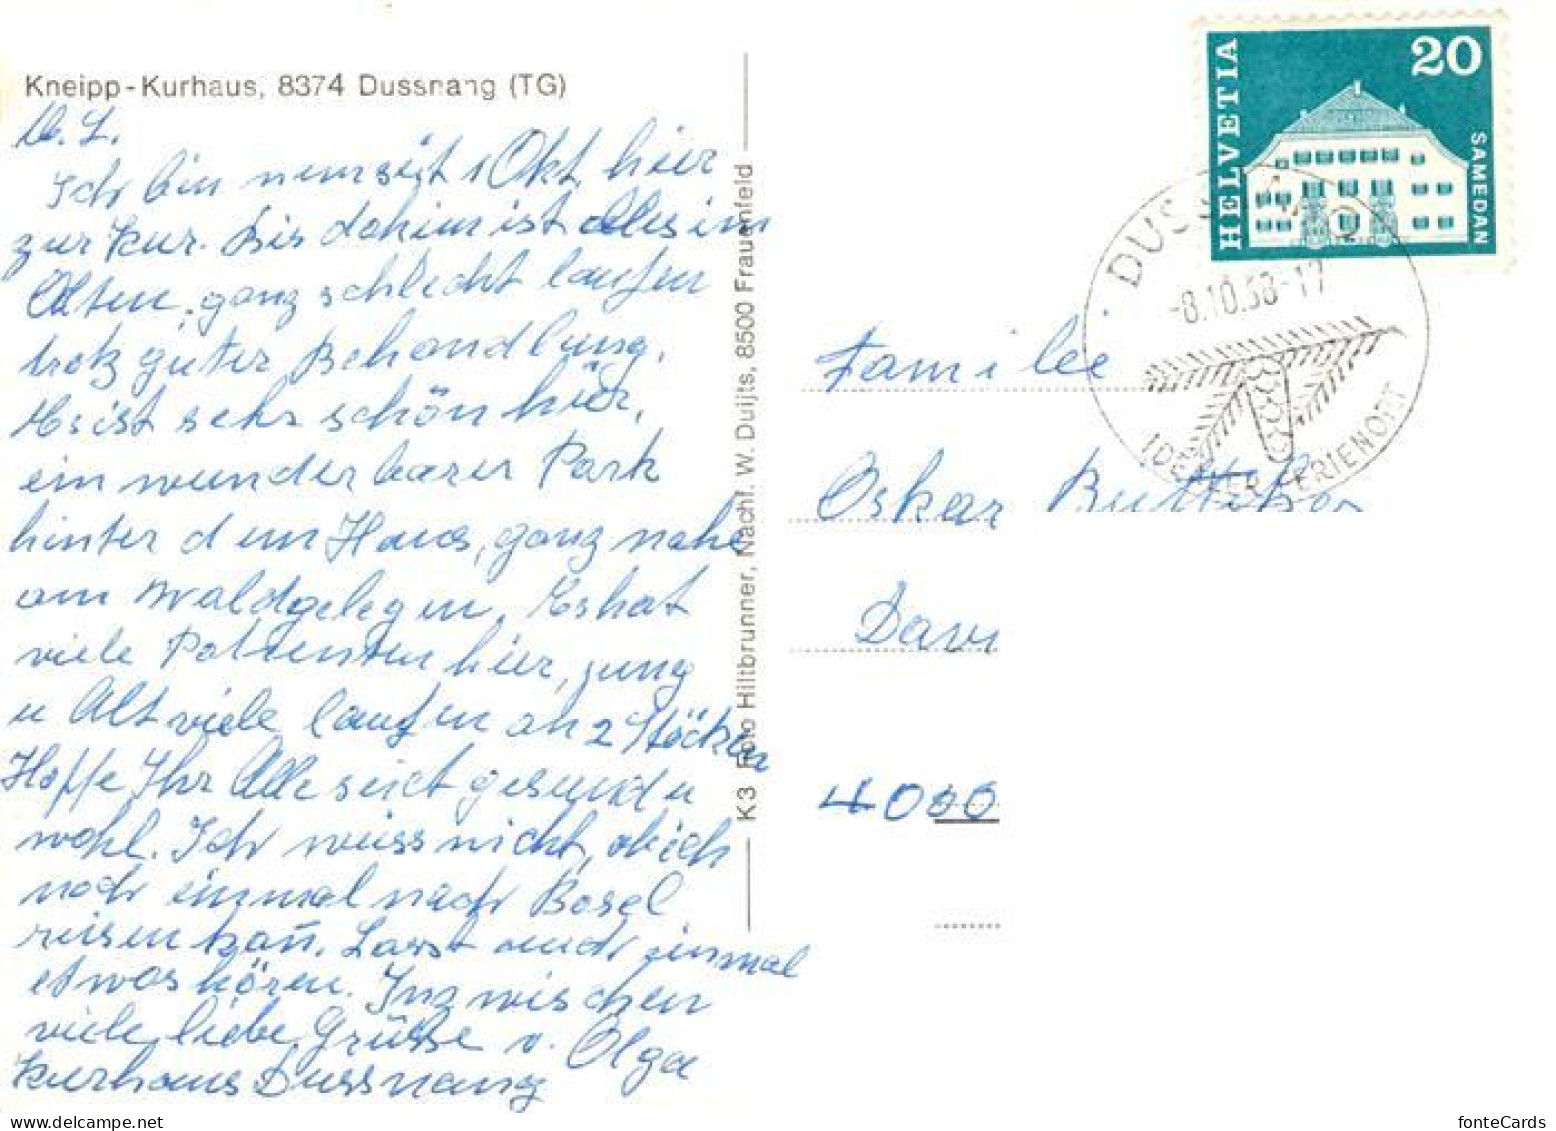 Kneipp-Kurhaus, 8374 Dussnang (TG)
M. L.
Ich bin nun seit 1 Okt. hier
zur Kur. Bis dahim ist alles im
Alten, ganz schlecht laufen
trotz guter Behandlung.
Es ist sehr schön hier,
ein wunderbarer Park
hinter dem Haus, ganz nahe
am Wald gelegen. Es hat
viele Patienten hier, jung
u Alt viele laufen an 2 Stöcken
Hoffe Ihr Alle seit gesund u
wohl. Ich weiss nicht, ob ich
noch einmal nach Basel
reisen kañ. Lasst auch einmal
etwas hören. Inzwischen
viele liebe Grüsse v. Olga
Kurhaus Dussnang
K3 Foto Hiltbrunner, Nachf. W. Duijts, 8500 Frauenfeld
HELVETIA
20
SAMEDAN
DUS
-8.10.68-17
IDEALER FERIENORT
Familie
Oskar
4000
fonteCards